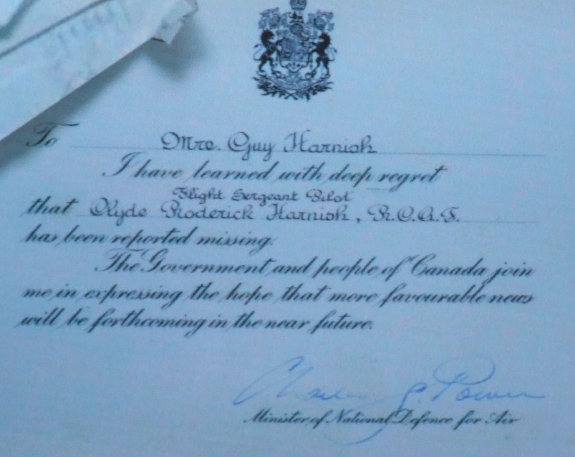 To Mrs. Guy Harnish
I have learned with deep regret
Flight Sergeant Pilot
that Clyde Roderick Harnish, R.C.A.F.
has been reported missing.
The Government and people of Canada join
me in expressing the hope that more favourable news
will be forthcoming in the near future.
Charles G. Power
Minister of National Defence for Air